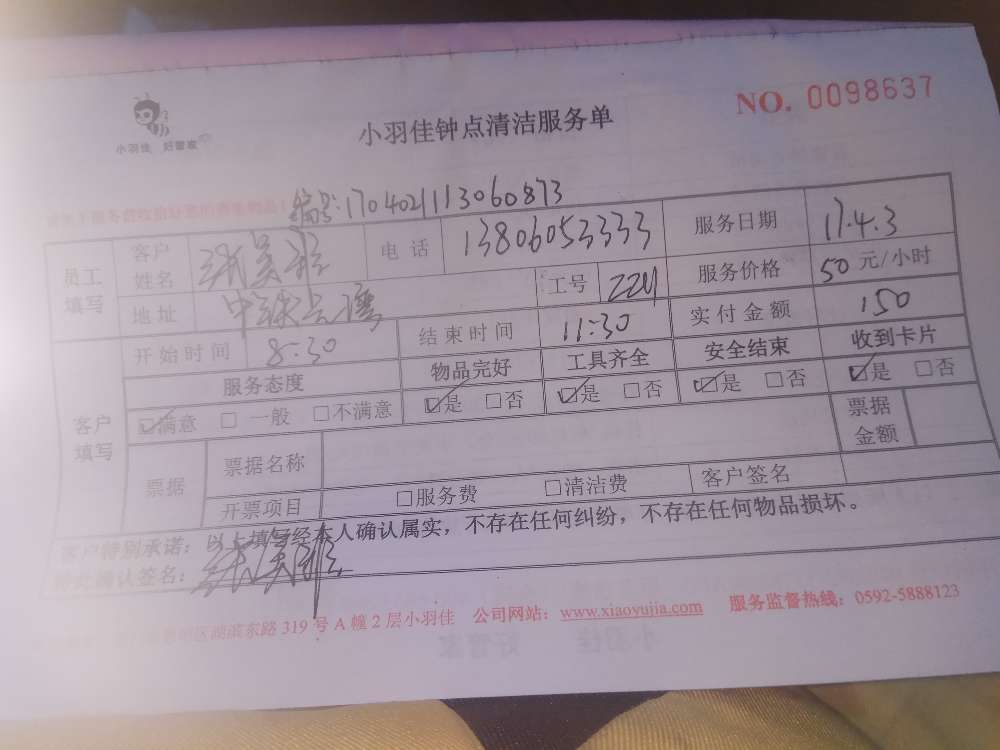 小羽佳 好管家
小羽佳钟点清洁服务单
NO. 0098637
编号:170402113060873
员工填写 客户姓名 电话 13806053333 服务日期 17.4.3
地址 工号 224 服务价格 50元/小时
客户填写 开始时间 8:30 结束时间 11:30 实付金额 150
服务态度 物品完好 工具齐全 安全结束 收到卡片
☑满意 □一般 □不满意 ☑是 □否 ☑是 □否 ☑是 □否 ☑是 □否
票据 票据名称 票据金额
开票项目 □服务费 □清洁费 客户签名
客户特别承诺：以上填写经本人确认属实，不存在任何纠纷，不存在任何物品损坏。
特此确认签名：
湖滨东路319号A幢2层小羽佳 公司网站：www.xiaoyujia.com 服务监督热线：0592-5888123